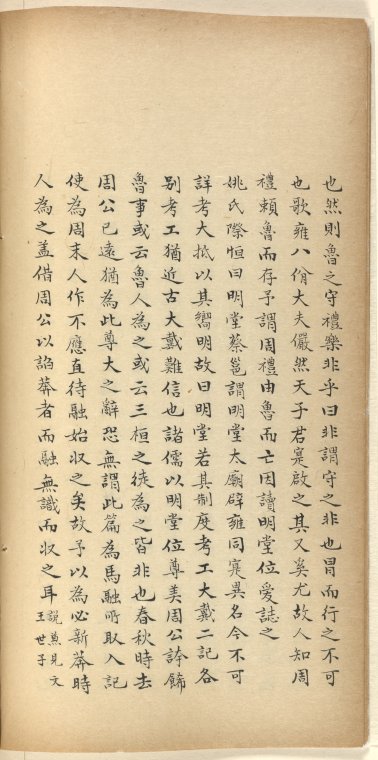 也然則魯之守禮樂非乎曰非謂守之非也冒而行之不可
也歌雍八佾大夫儼然天子君寔啟之其又奚尤故人知周
禮賴魯而存予謂周禮由魯而亡因讀明堂位爰誌之
姚氏際恒曰明堂蔡邕謂明堂太廟辟雍同寔異名今不可
詳考大抵以其嚮明故曰明堂若其制度考工大戴二記各
别考工猶近古大戴難信也諸儒以明堂位尊美周公誇飾
魯事或云魯人為之或云三桓之徒為之皆非也春秋時去
周公已遠猶為此尊大之辭恐無謂此篇為馬融所取入記
使為周末人作不應直待融始收之矣故予以為必新莽時
人為之盖借周公以諂莽者而融無識而收之耳說兼見文王世子